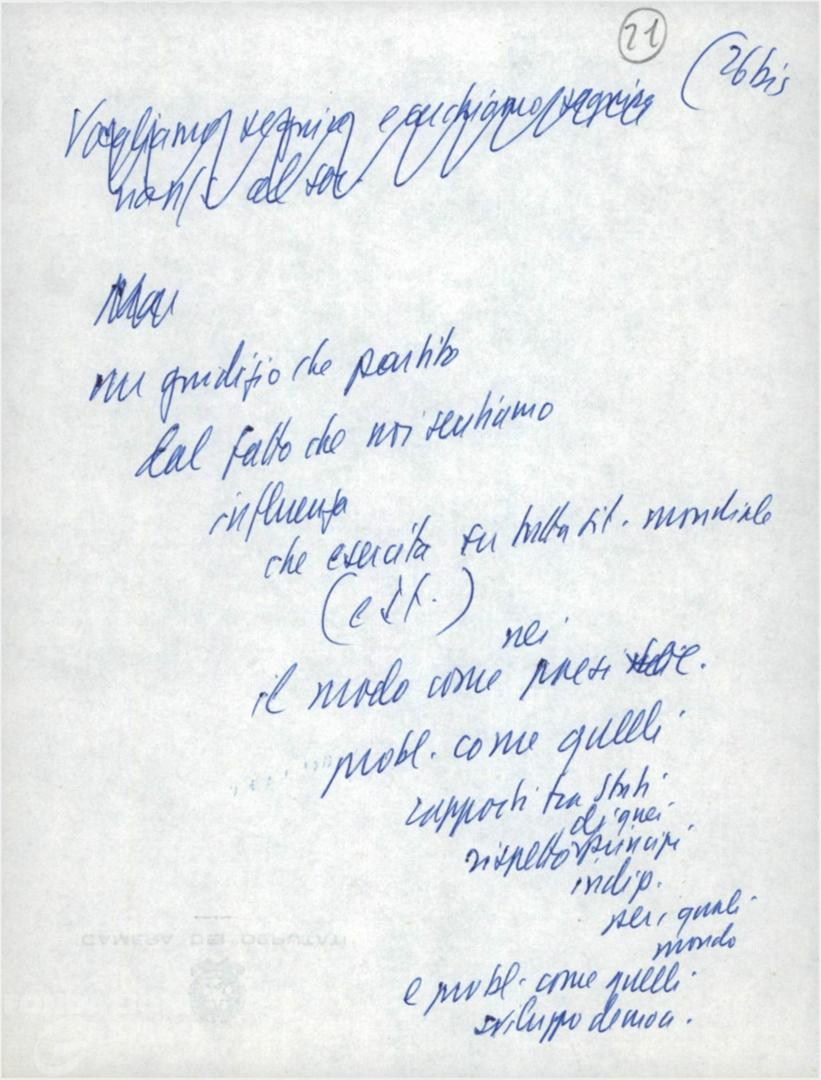 21
(26 bis
Vogliamo seguire e cerchiamo seguire
non si al soc.
un giudizio che partito
dal fatto che noi sentiamo
influenza
che esercita su tutta sit. mondiale
(e st.)
nei
il modo come paesi
probl. come quelli
rapporti tra Stati
di quei
rispetto principi
indip.
per i quali
mondo
e probl. come quelli
sviluppo democr.
CAMERA DEI DEPUTATI